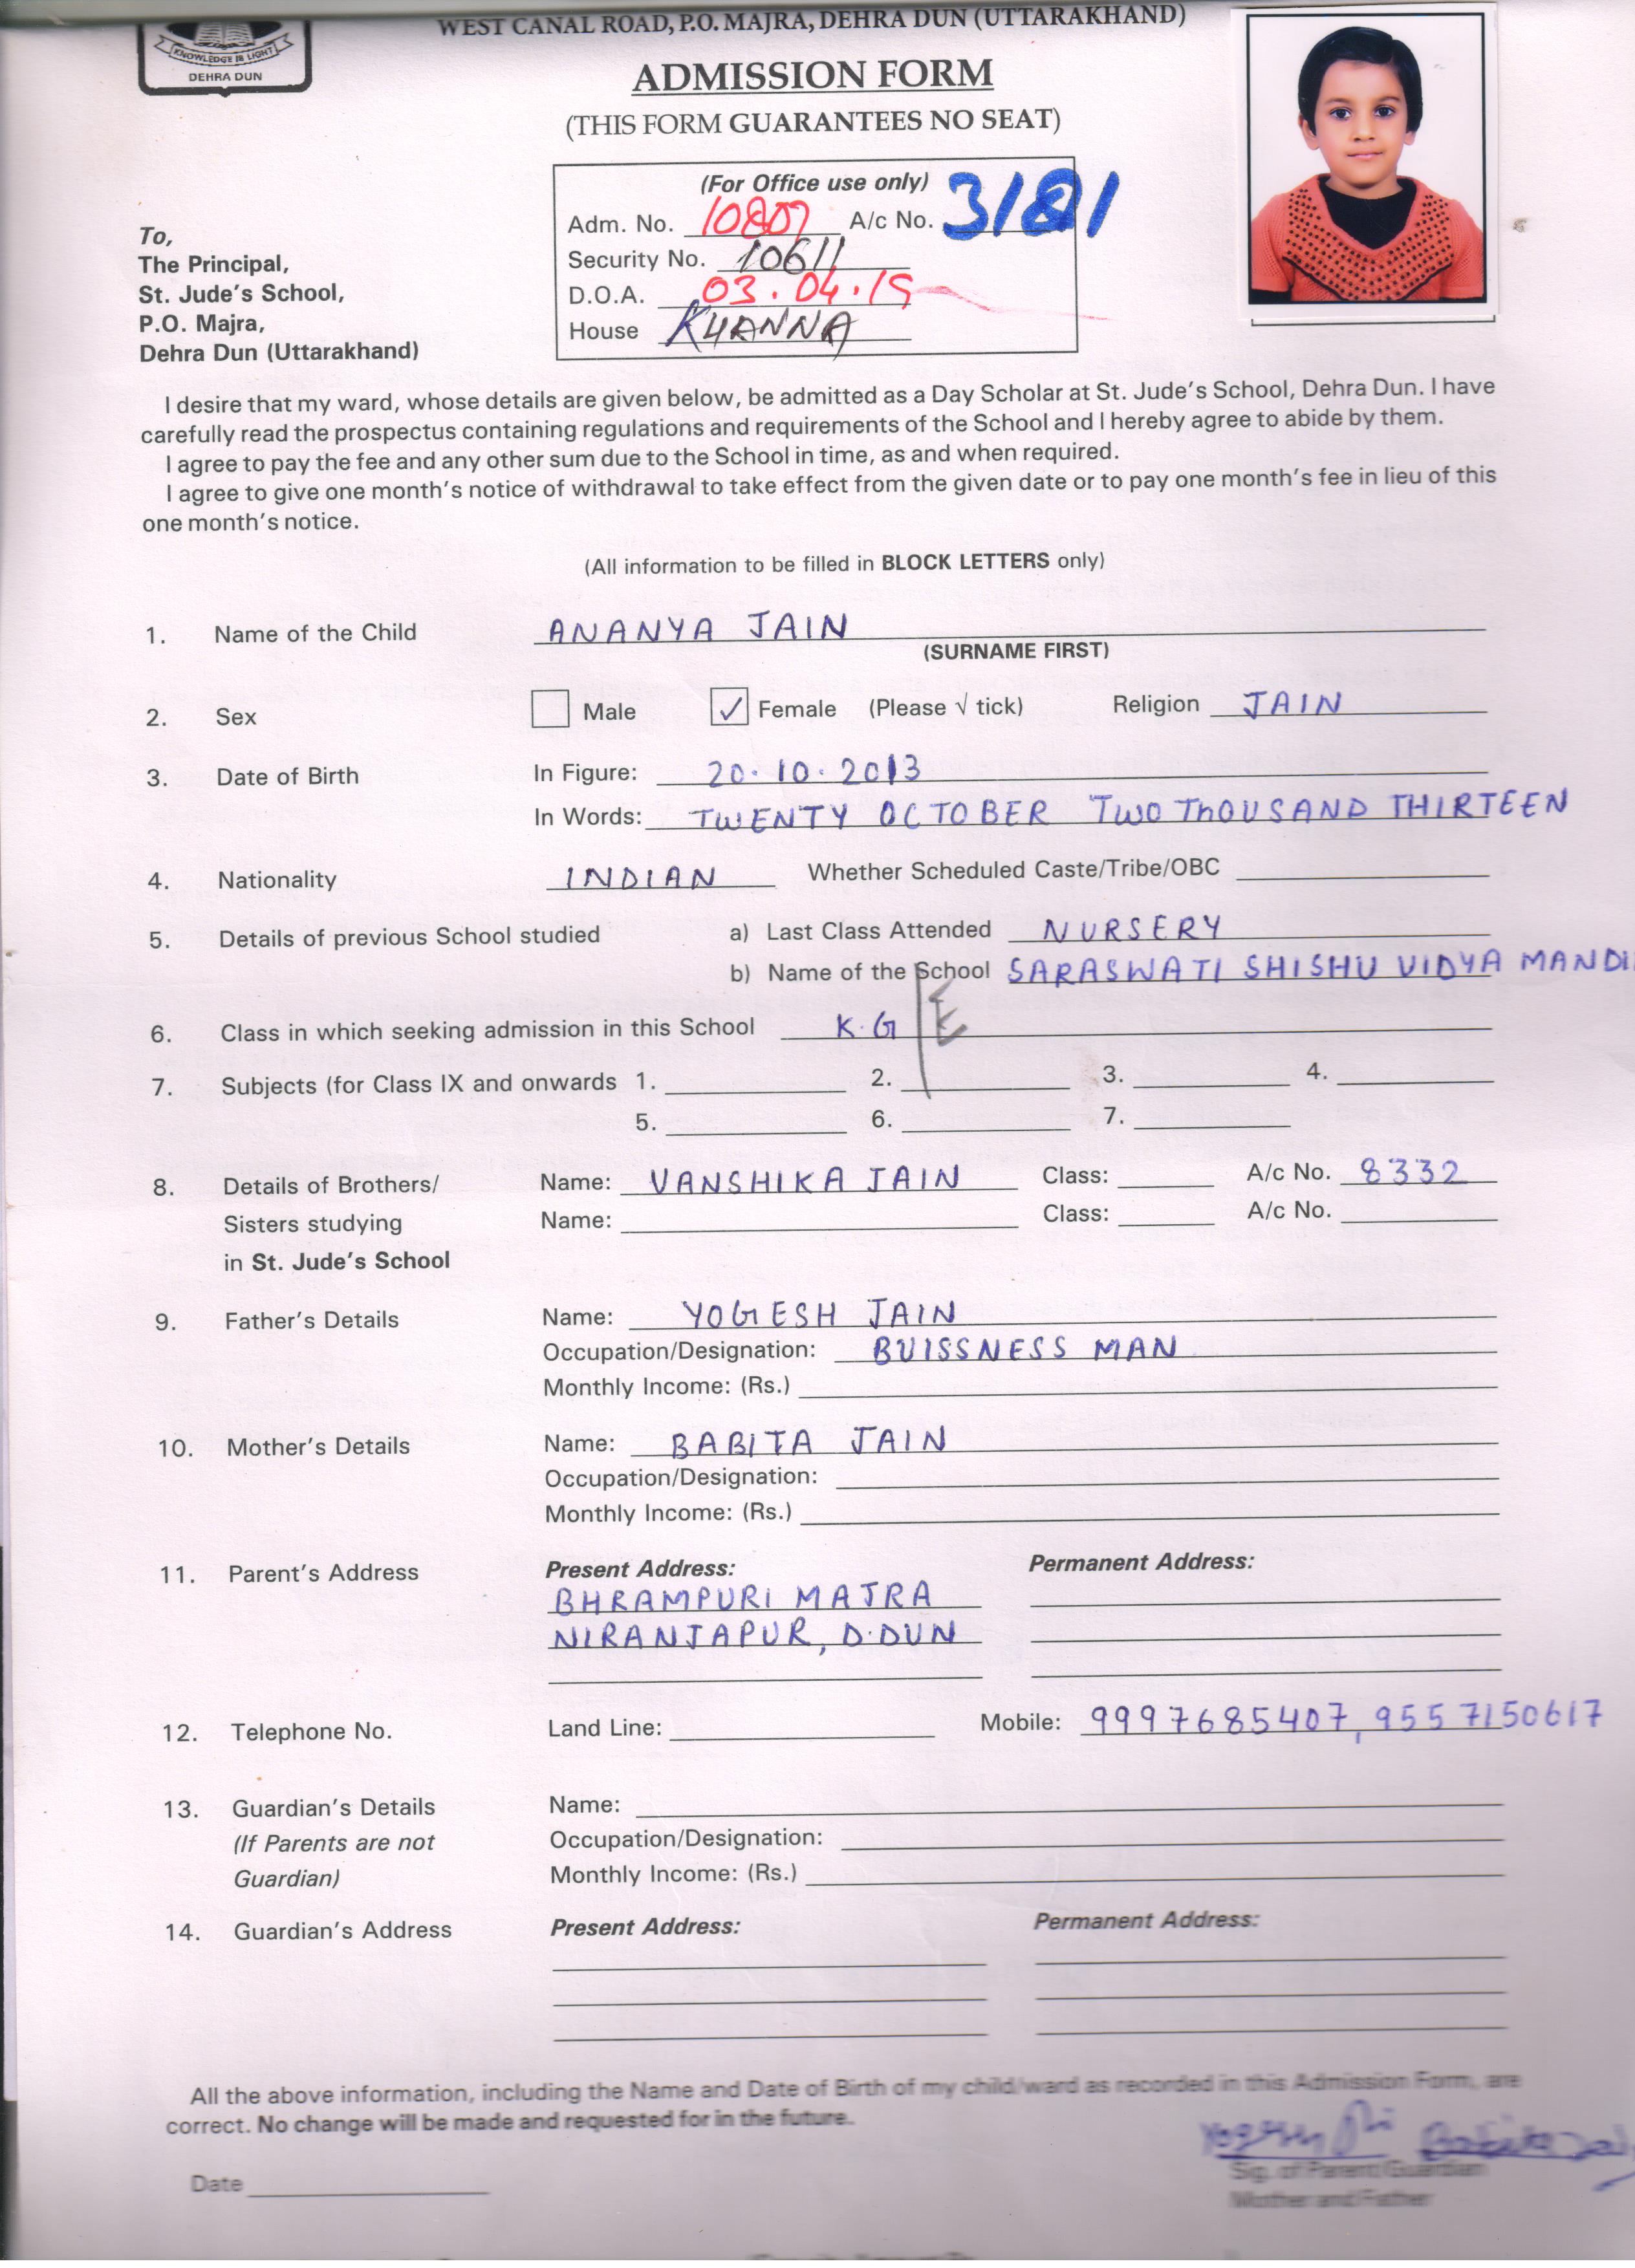 WEST CANAL ROAD, P.O. MAJRA, DEHRA DUN (UTTARAKHAND)
KNOWLEDGE IS LIGHT
DEHRA DUN
ADMISSION FORM
(THIS FORM GUARANTEES NO SEAT)
(For Office use only)
Adm. No. 10807 A/c No. 3181
Security No. 10611
D.O.A. 03.04.19
House KHANNA
To,
The Principal,
St. Jude's School,
P.O. Majra,
Dehra Dun (Uttarakhand)
I desire that my ward, whose details are given below, be admitted as a Day Scholar at St. Jude's School, Dehra Dun. I have
carefully read the prospectus containing regulations and requirements of the School and I hereby agree to abide by them.
I agree to pay the fee and any other sum due to the School in time, as and when required.
I agree to give one month's notice of withdrawal to take effect from the given date or to pay one month's fee in lieu of this
one month's notice.
(All information to be filled in BLOCK LETTERS only)
1. Name of the Child ANANYA JAIN
(SURNAME FIRST)
2. Sex Male ✓ Female (Please √ tick) Religion JAIN
3. Date of Birth In Figure: 20.10.2013
In Words: TWENTY OCTOBER TWO THOUSAND THIRTEEN
4. Nationality INDIAN Whether Scheduled Caste/Tribe/OBC
5. Details of previous School studied a) Last Class Attended NURSERY
b) Name of the School SARASWATI SHISHU VIDYA MANDI
6. Class in which seeking admission in this School K.G E
7. Subjects (for Class IX and onwards 1. 2. 3. 4.
5. 6. 7.
8. Details of Brothers/ Name: VANSHIKA JAIN Class: A/c No. 8332
Sisters studying Name: Class: A/c No.
in St. Jude's School
9. Father's Details Name: YOGESH JAIN
Occupation/Designation: BUISSNESS MAN
Monthly Income: (Rs.)
10. Mother's Details Name: BABITA JAIN
Occupation/Designation:
Monthly Income: (Rs.)
11. Parent's Address Present Address: Permanent Address:
BHRAMPURI MAJRA
NIRANJAPUR, D.DUN
12. Telephone No. Land Line: Mobile: 9997685407, 9557150617
13. Guardian's Details Name:
(If Parents are not Occupation/Designation:
Guardian) Monthly Income: (Rs.)
14. Guardian's Address Present Address: Permanent Address:
All the above information, including the Name and Date of Birth of my child/ward as recorded in this Admission Form, are
correct. No change will be made and requested for in the future.
Date
Sig. of Parent/Guardian
Mother and Father